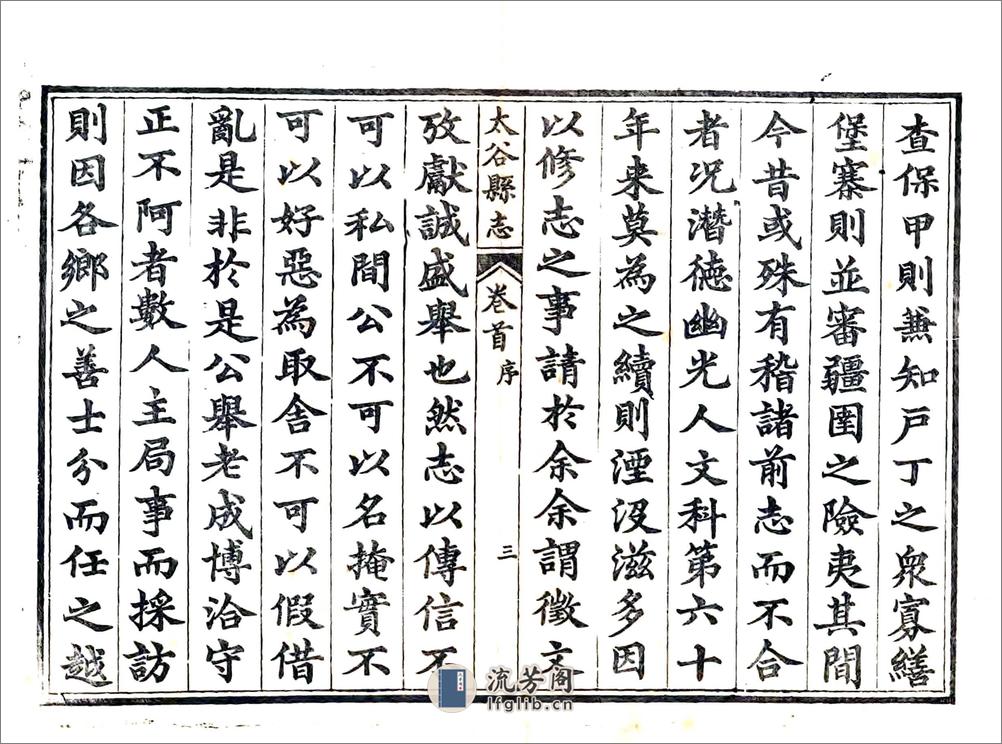 查保甲則蒹知戸丁之衆寡繕
堡寨則並審疆圉之險夷其間
今昔或殊有稽諸前志而不合
者况潛德幽光人文科第六十
年来莫為之續則湮没滋多因
以修志之事請於余余謂徵文
太谷縣志 卷首 序 三
攷獻誠盛舉也然志以傳信不
可以私間公不可以名掩實不
可以好惡為取舎不可以假借
亂是非於是公舉老成博洽守
正不阿者數人主局事而採訪
則因各鄉之善士分而任之越
流芳阁
lfglib.cn